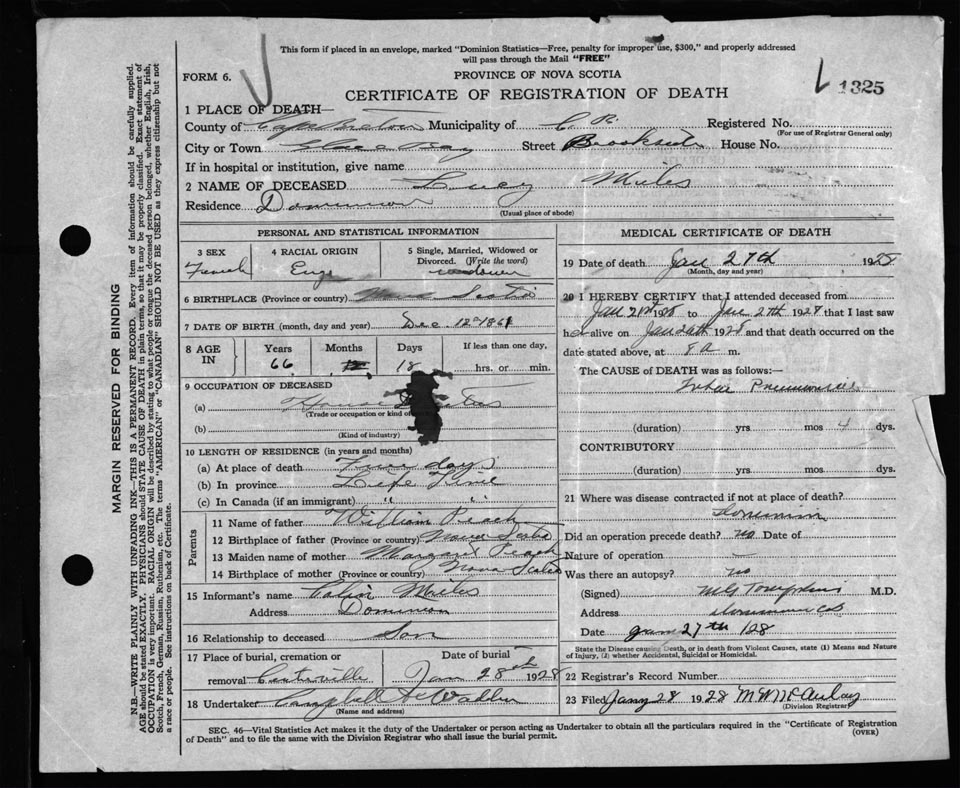 This form if placed in an envelope, marked "Dominion Statistics—Free, penalty for improper use, $300," and properly addressed
will pass through the Mail "FREE"
FORM 6.
PROVINCE OF NOVA SCOTIA
1325
CERTIFICATE OF REGISTRATION OF DEATH
1 PLACE OF DEATH—
County of Cape Breton Municipality of C. B. Registered No.
(For use of Registrar General only)
City or Town Glace Bay Street Brookside House No.
If in hospital or institution, give name
2 NAME OF DECEASED Lucy Miles
Residence Dominion
(Usual place of abode)
PERSONAL AND STATISTICAL INFORMATION
3 SEX Female
4 RACIAL ORIGIN Eng
5 Single, Married, Widowed or Divorced. (Write the word) widower
6 BIRTHPLACE (Province or country) Nova Scotia
7 DATE OF BIRTH (month, day and year) Dec 12th 1861
8 AGE IN Years Months Days If less than one day,
66 hrs. or min.
9 OCCUPATION OF DECEASED
(a) House
(Trade or occupation or kind of
(b)
(Kind of industry)
10 LENGTH OF RESIDENCE (in years and months)
(a) At place of death days
(b) In province Life Time
(c) In Canada (if an immigrant) " "
Parents
11 Name of father William Peach
12 Birthplace of father (Province or country) Nova Scotia
13 Maiden name of mother Margaret Peach
14 Birthplace of mother (Province or country) Nova Scotia
15 Informant's name Miles
Address Dominion
16 Relationship to deceased Son
17 Place of burial, cremation or removal Date of burial
Jan 28th 1928
18 Undertaker Campbell &
(Name and address)
MEDICAL CERTIFICATE OF DEATH
19 Date of death Jan 27th 1928
(Month, day and year)
20 I HEREBY CERTIFY that I attended deceased from
Jan 21st 1928 to Jan 27th 1928 that I last saw
her alive on Jan 26th 1928 and that death occurred on the
date stated above, at 8 a m.
The CAUSE OF DEATH was as follows:—
Lobar Pneumonia
(duration) yrs. mos 4 dys.
CONTRIBUTORY
(duration) yrs. mos. dys.
21 Where was disease contracted if not at place of death?
Dominion
Did an operation precede death? no Date of
Nature of operation —
Was there an autopsy? no
(Signed) M G Tompkins M.D.
Address Dominion CB
Date Jan 27th 128
State the Disease causing Death, or in death from Violent Causes, state (1) Means and
Nature of Injury, (2) whether Accidental, Suicidal or Homicidal.
22 Registrar's Record Number
23 Filed Jany 28 1928 M W McAulay
(Division Registrar)
SEC. 46—Vital Statistics Act makes it the duty of the Undertaker or person acting as Undertaker to obtain all the particulars required in the "Certificate of Registration
of Death" and to file the same with the Division Registrar who shall issue the burial permit.
(OVER)
MARGIN RESERVED FOR BINDING
N.B.—WRITE PLAINLY WITH UNFADING INK—THIS IS A PERMANENT RECORD. Every item of information should be carefully supplied.
AGE should be stated EXACTLY. PHYSICIANS should STATE CAUSE OF DEATH in plain terms, so that it may be properly classified. Exact statement of
OCCUPATION is very important. RACIAL ORIGIN will be described by stating to what people or tongue the deceased person belonged, whether English, Irish,
Scotch, French, German, Russian, Ruthenian, etc. The terms "AMERICAN" or "CANADIAN" SHOULD NOT BE USED as they express citizenship but not
a race or people. See instructions on back of Certificate.